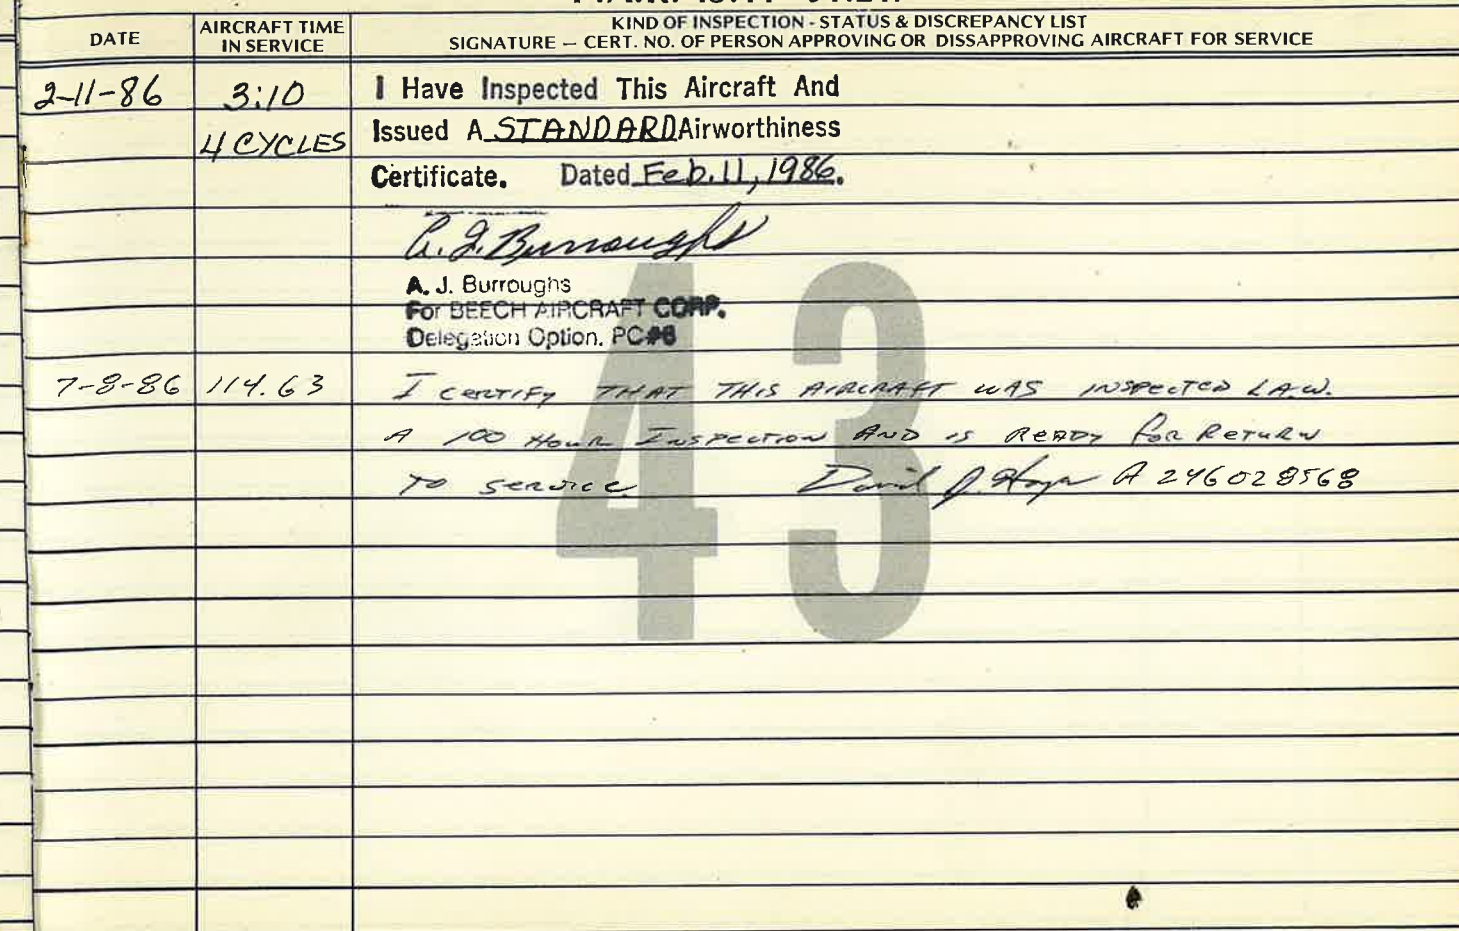 DATE
AIRCRAFT TIME
IN SERVICE
KIND OF INSPECTION - STATUS & DISCREPANCY LIST
SIGNATURE – CERT. NO. OF PERSON APPROVING OR DISSAPPROVING AIRCRAFT FOR SERVICE
2-11-86 3:10 I Have Inspected This Aircraft And
4 CYCLES Issued A STANDARD Airworthiness
Certificate. Dated Feb. 11, 1986.
A. J. Burroughs
A. J. Burroughs
For BEECH AIRCRAFT CORP.
Delegation Option. PC#8
43
7-8-86 114.63 I CERTIFY THAT THIS AIRCRAFT WAS INSPECTED I.A.W.
A 100 HOUR INSPECTION AND IS READY FOR RETURN
TO SERVICE David J. A 246028568